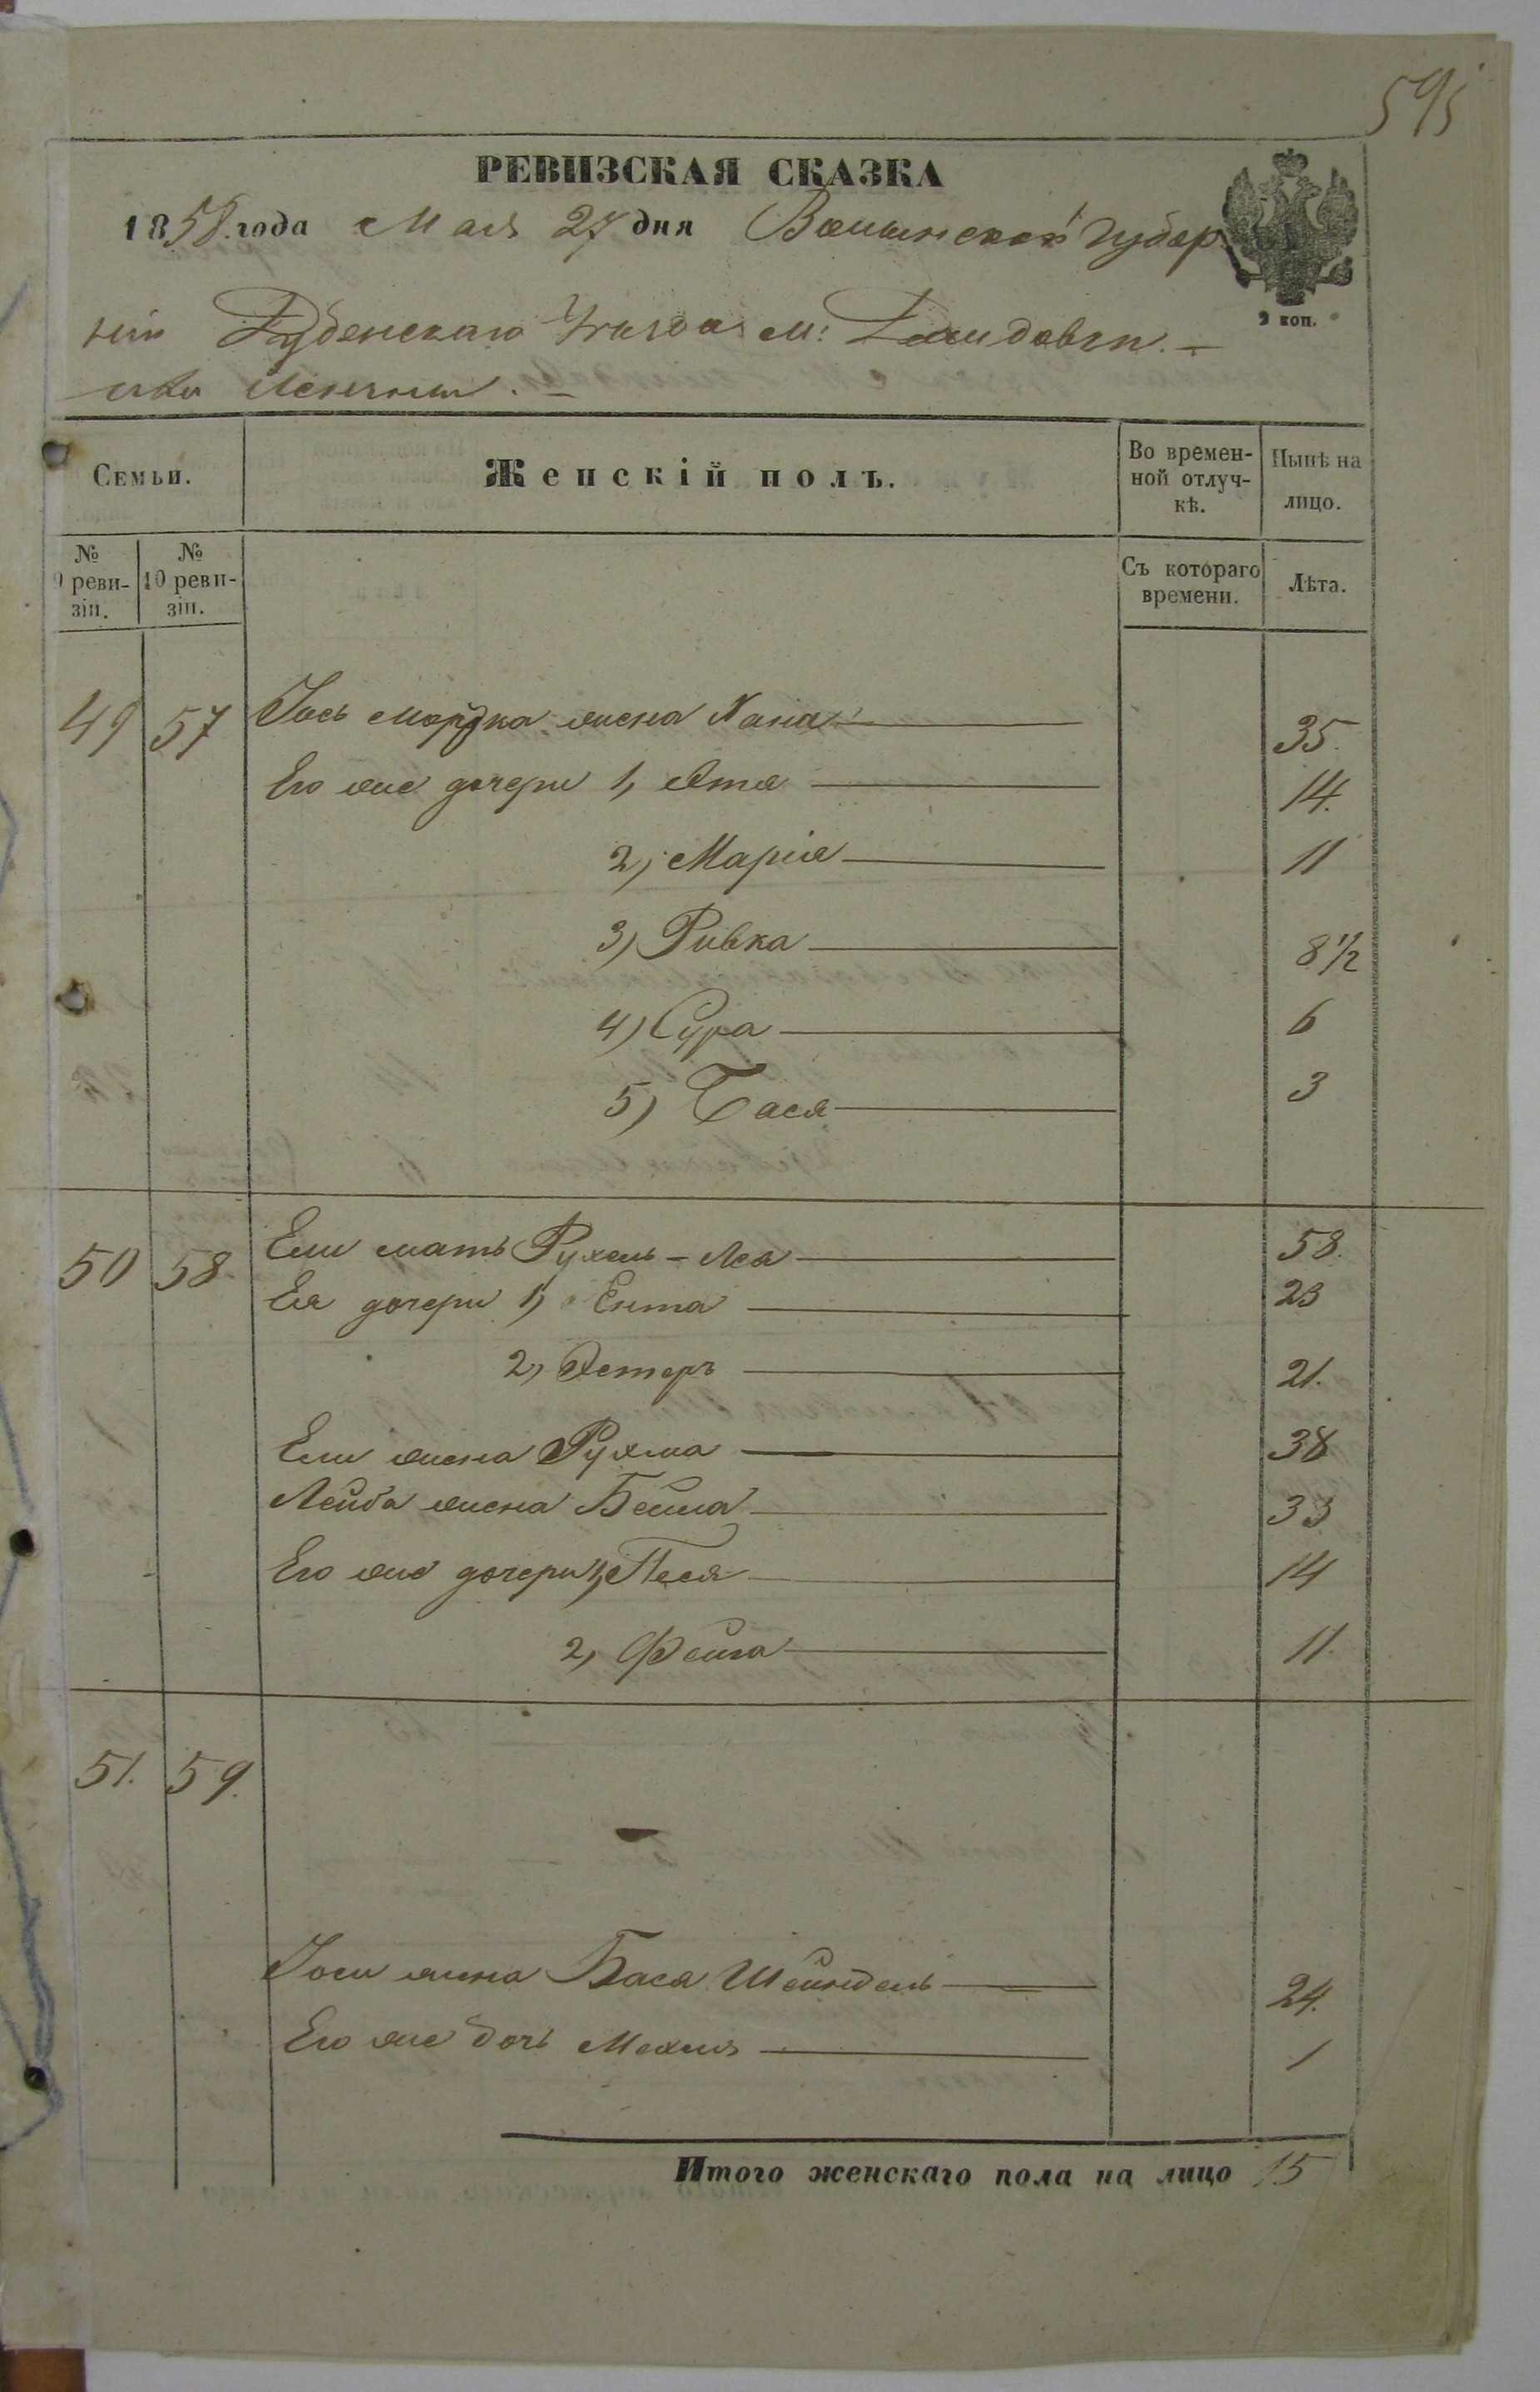 595
РЕВИЗСКАЯ СКАЗКА
1858 года Мая 27 дня Волынской Губер
ніи Дубенскаго Уезда м: Демидовки.
2 коп.
Семьи.
Женскій полъ.
Во времен-
ной отлуч-
кѣ.
Нынѣ на
лицо.
№
9 реви-
зіи.
№
10 реви-
зіи.
Съ котораго
времени.
Лѣта.
49 57 Іось Мордка жена Хана 35.
Его же дочери 1, Этя 14.
2, Марія 11
3) Ривка 8 1/2
4) Сура 6
5) Бася 3
50 58. Ели мать Рухель-Лея 58.
Ея дочери 1, Ента 23
2, Эстеръ 21.
Ели жена Рухма 38
Лейба жена Бейла 33
Его же дочери 1, Песя 14
2, Фейга 11.
51. 59.
Іоси жена Бася Шейндель 24.
Его же дочь Мехля 1
Итого женскаго пола на лицо 15